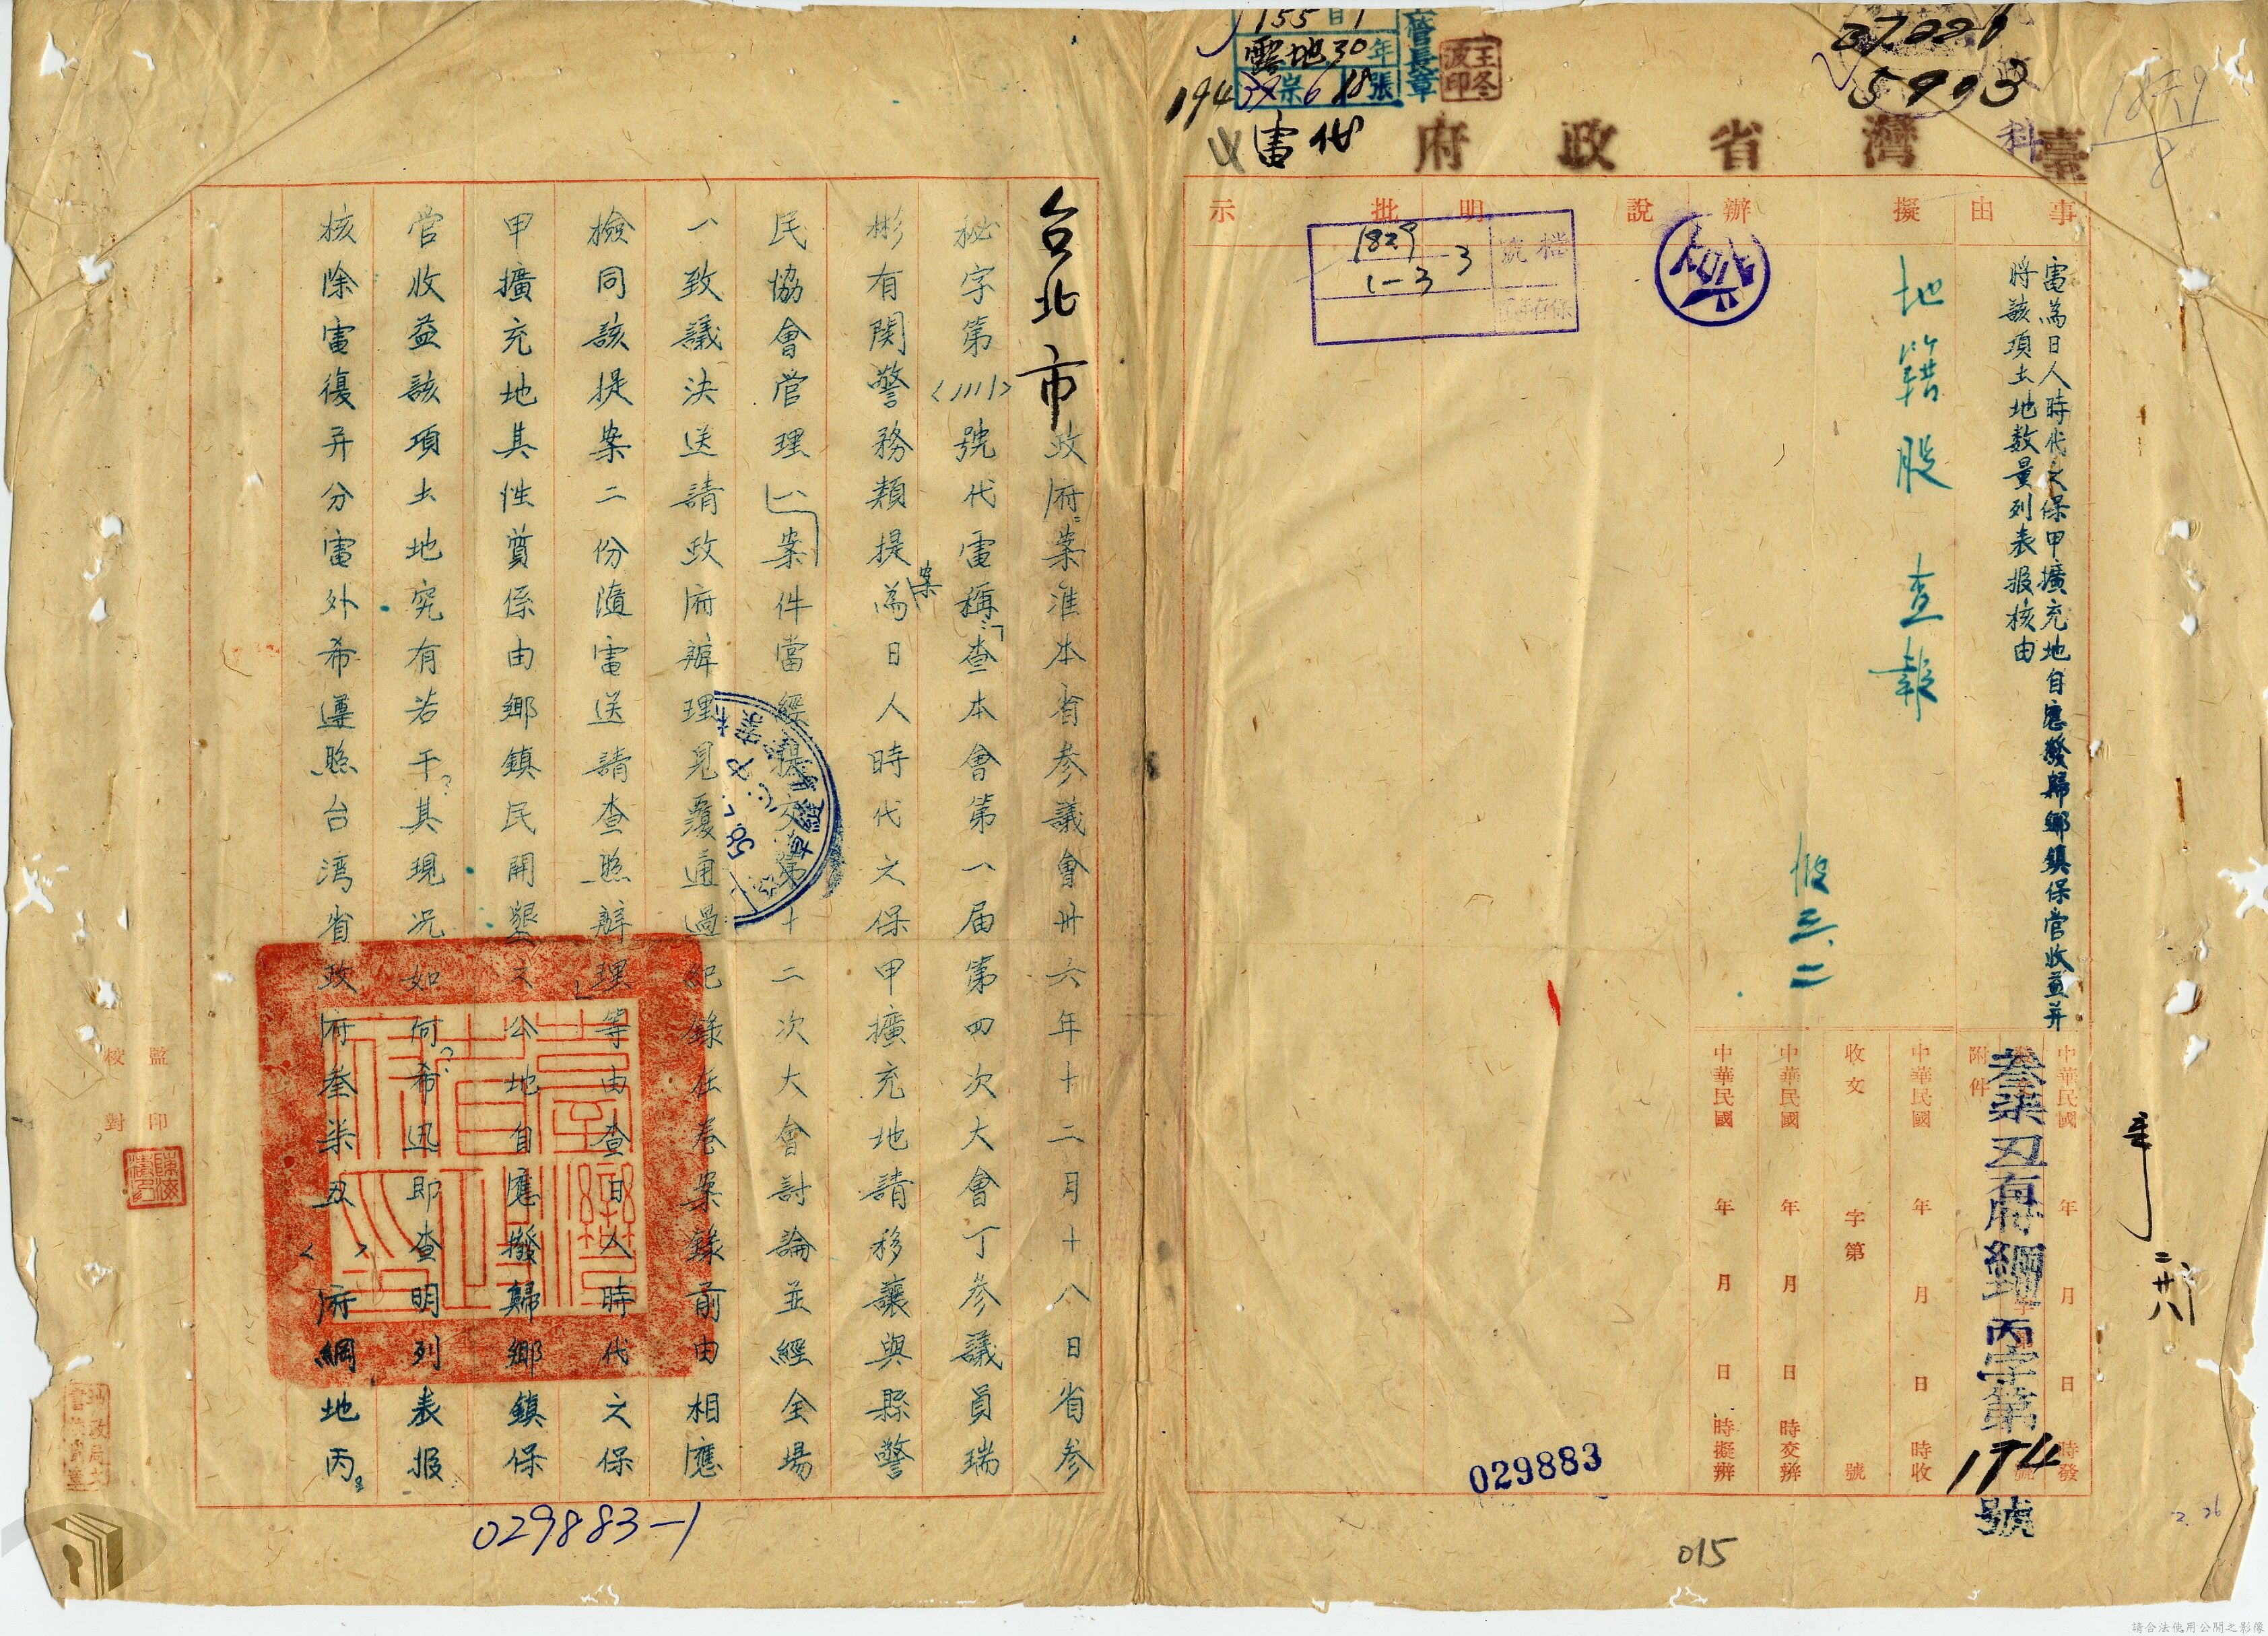 臺灣省政府
代電
事由
擬辦
說明
批示
電為日人時代之保甲擴充地自應撥歸鄉鎮保管收益并
將該項土地数量列表报核由
地籍股 查報
檔號
1829
1-3
3
中華民國 年 月 日 時發
附件
中華民國 年 月 日 時收
收文 字第 號
中華民國 年 月 日 時交辦
中華民國 年 月 日 時擬辦
叁柒丑府綱地丙字第174號
029883
015
台北市政府:案准本省参議會卅六年十二月十八日省参
秘字第 號代電稱:「查本會第一届第四次大會丁参議員瑞
彬有関警務類提案為日人時代之保甲擴充地請移讓與縣警
民協會管理一案件當經提交第十二次大會討論並經全場
一致議決送請政府辦理見覆通過紀錄在卷案錄前由相應
檢同該提案二份隨電送請查照辦理」等由查日人時代之保
甲擴充地其性質係由鄉鎮民開墾之公地自應撥歸鄉鎮保
管收益該項土地究有若干?其現况如何?希迅即查明列表报
核除電復弁分電外希遵照台湾省政府叁柒丑 府綱地丙
監印
校對
029883-1
請合法使用公開之影像